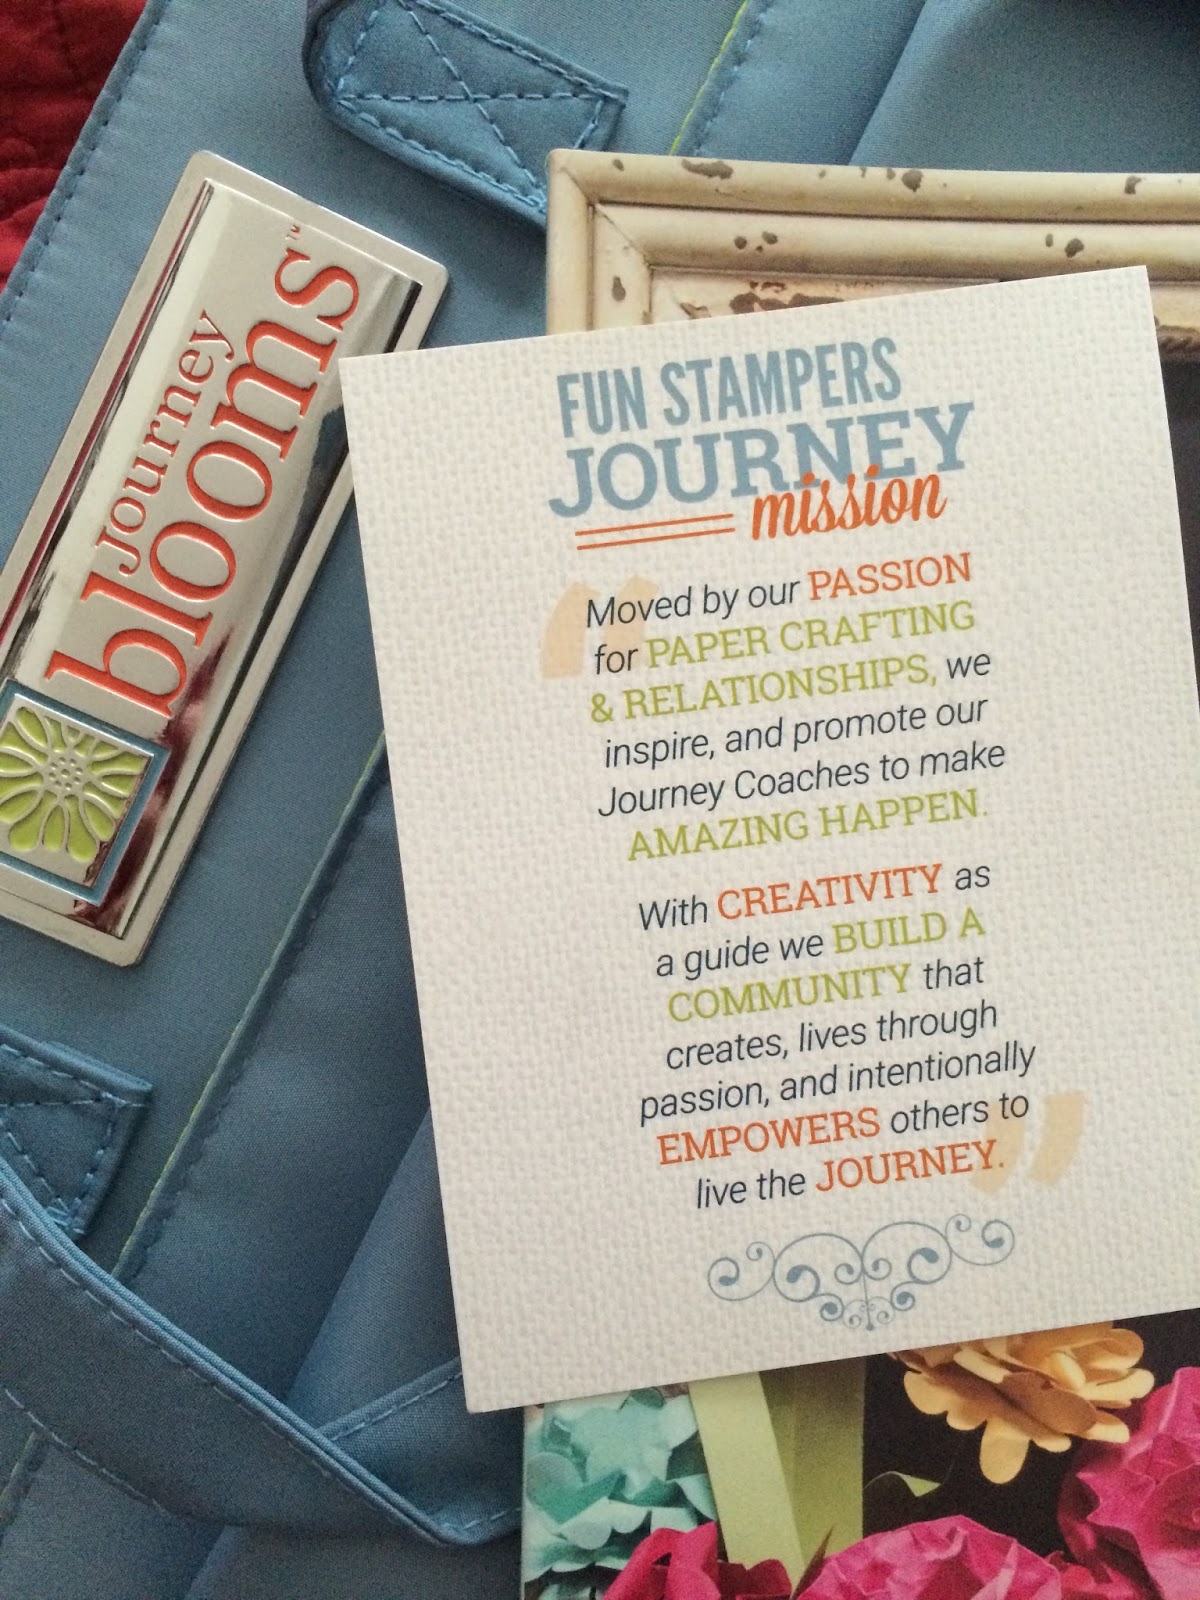 Journey
blooms™
FUN STAMPERS
JOURNEY
mission
“Moved by our PASSION
for PAPER CRAFTING
& RELATIONSHIPS, we
inspire, and promote our
Journey Coaches to make
AMAZING HAPPEN.
With CREATIVITY as
a guide we BUILD A
COMMUNITY that
creates, lives through
passion, and intentionally
EMPOWERS others to
live the JOURNEY.”